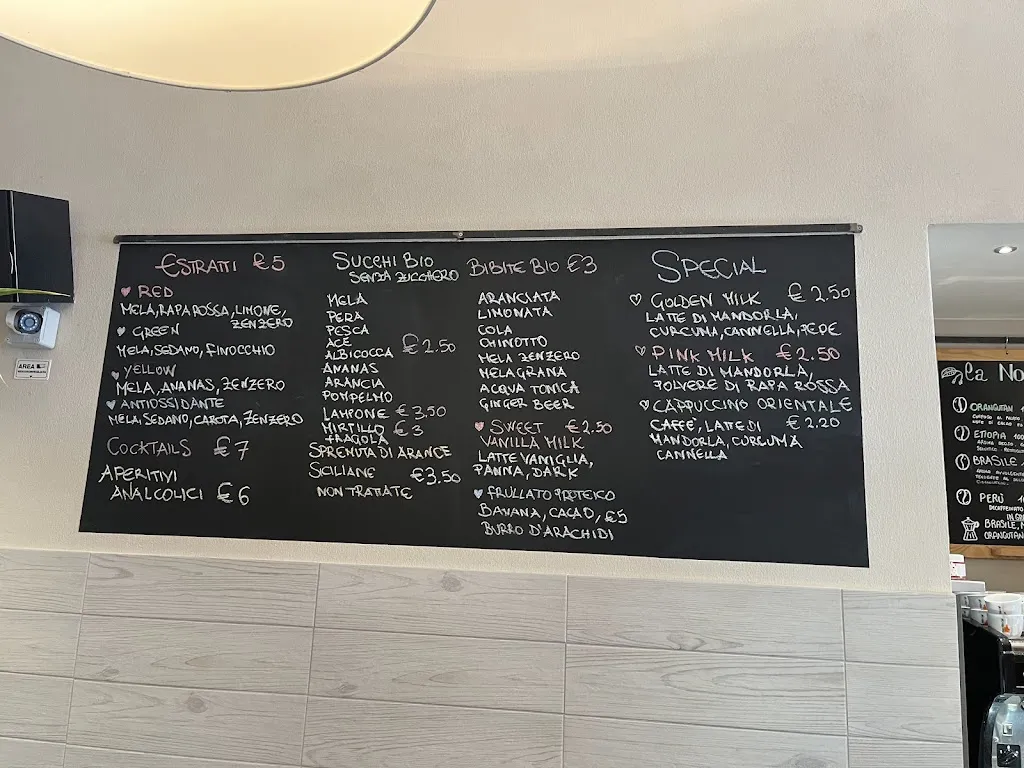 ESTRATTI €5
RED
MELA, RAPA ROSSA, LIMONE,
ZENZERO
GREEN
MELA, SEDANO, FINOCCHIO
YELLOW
MELA, ANANAS, ZENZERO
ANTIOSSIDANTE
MELA, SEDANO, CAROTA, ZENZERO
COCKTAILS €7
APERITIVI
ANALCOLICI €6
SUCCHI BIO
SENZA ZUCCHERO
MELA
PERA
PESCA
ACE
ALBICOCCA €2.50
ANANAS
ARANCIA
POMPELMO
LAMPONE €3,50
MIRTILLO €3
FRAGOLA
SPREMUTA DI ARANCE
SICILIANE €3.50
NON TRATTATE
BIBITE BIO €3
ARANCIATA
LIMONATA
COLA
CHINOTTO
MELA ZENZERO
MELAGRANA
ACQUA TONICA
GINGER BEER
SWEET €2.50
VANILLA MILK
LATTE VANIGLIA,
PANNA, DARK
FRULLATO PROTEICO
BANANA, CACAO, €5
BURRO D'ARACHIDI
SPECIAL
GOLDEN MILK €2.50
LATTE DI MANDORLA,
CURCUMA, CANNELLA, PEPE
PINK MILK €2.50
LATTE DI MANDORLA,
POLVERE DI RAPA ROSSA
CAPPUCCINO ORIENTALE
CAFFE', LATTE DI €2.20
MANDORLA, CURCUMA
CANNELLA
AREA
La No
1 ORANGUTAN
ETIOPIA 100
BRASILE
PERÙ
DECAFFEINATO
BRASILE,
ORANGUTAN